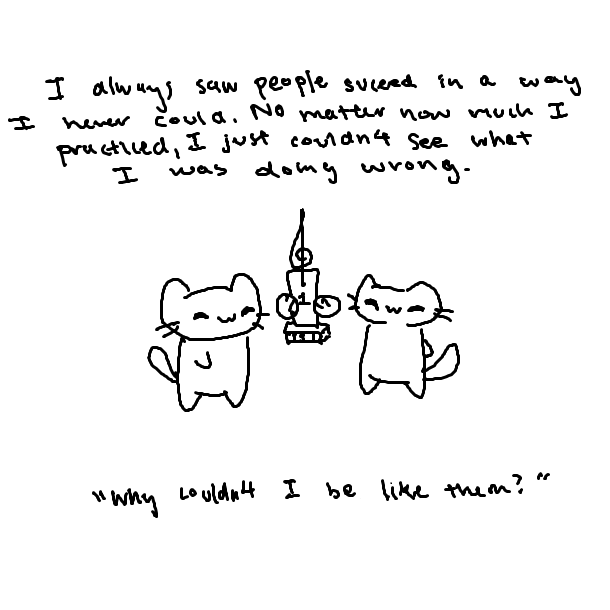 I always saw people succeed in a way
I never could. No matter how much I
practiced, I just couldn't see what
I was doing wrong.
1
"Why couldn't I be like them?"